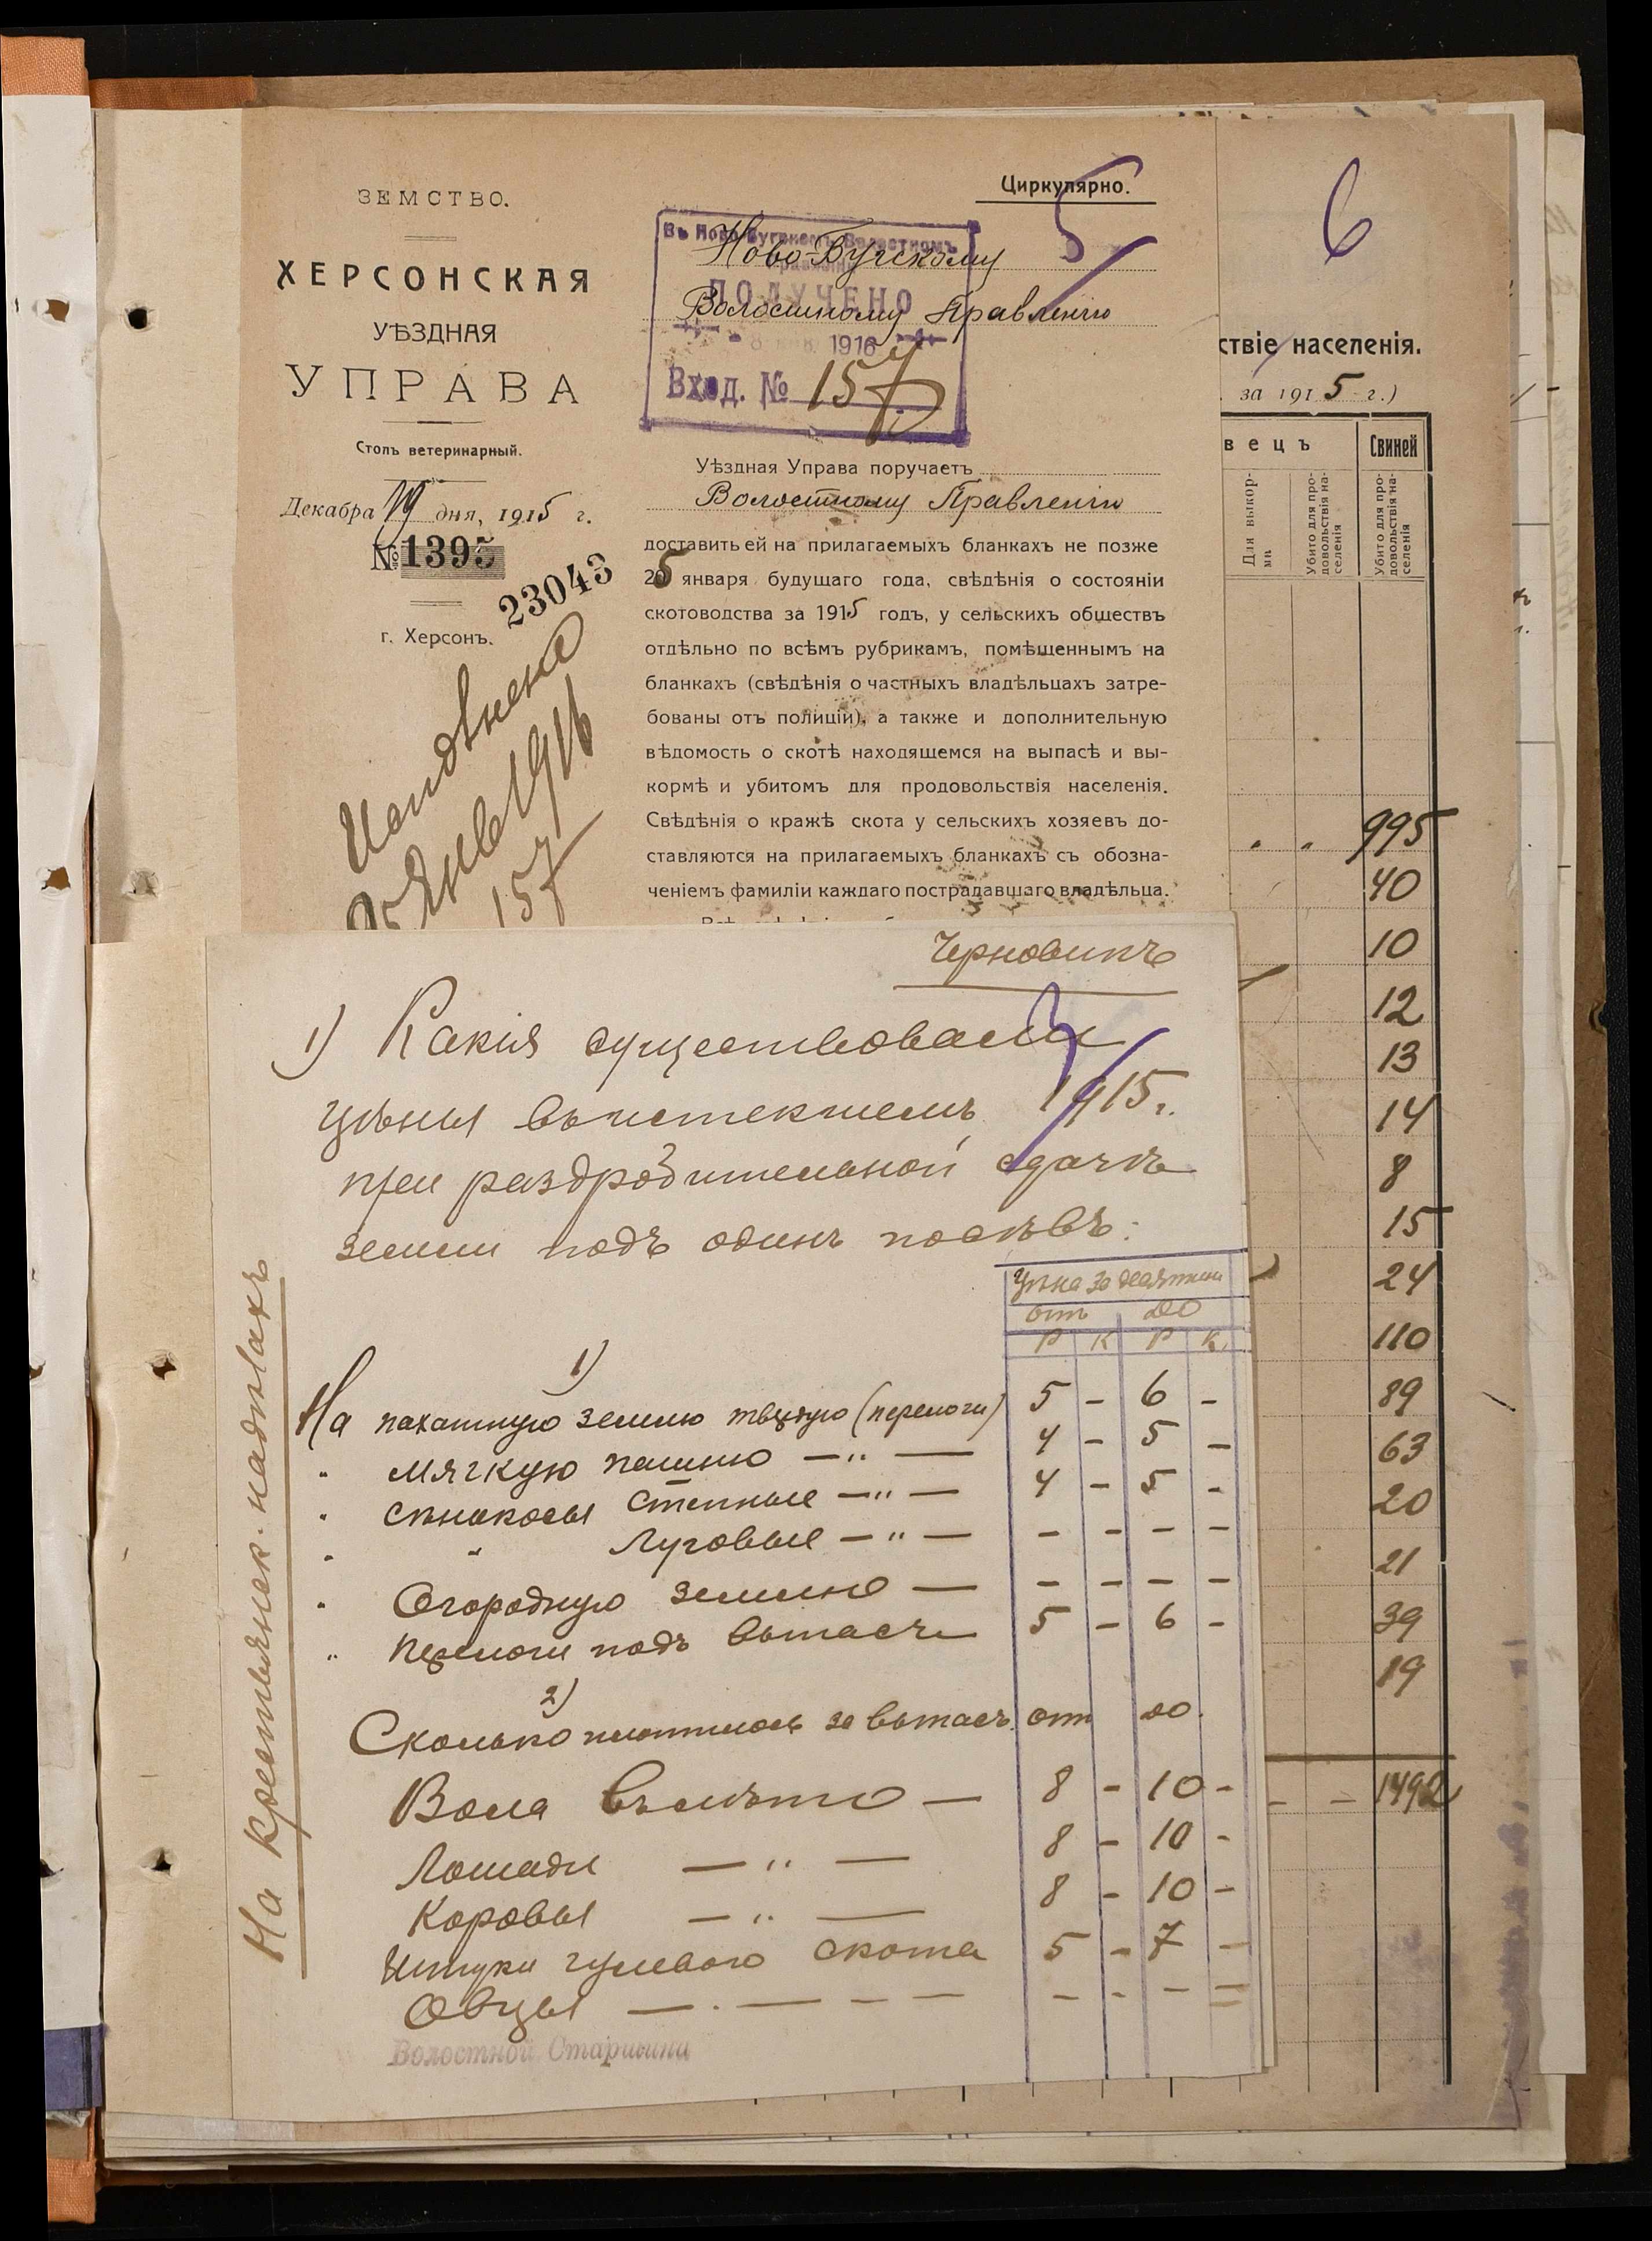 ЗЕМСТВО.
ХЕРСОНСКАЯ
УѢЗДНАЯ
УПРАВА
Столъ ветеринарный.
Декабря 19 дня, 1915 г.
№ 1395
23043
г. Херсонъ.
Исполнено
25 Янв 1916
157
Циркулярно.
5
Въ Ново-Бугскомъ Волостномъ
Правленіи
ПОЛУЧЕНО
1916
Вход. № 157
Ново-Бугскому
Волостному Правленію
Уѣздная Управа поручаетъ
Волостному Правленію
доставить ей на прилагаемыхъ бланкахъ не позже
25 января будущаго года, свѣдѣнія о состояніи
скотоводства за 1915 годъ, у сельскихъ обществъ
отдѣльно по всѣмъ рубрикамъ, помѣщеннымъ на
бланкахъ (свѣдѣнія о частныхъ владѣльцахъ затре-
бованы отъ полиціи), а также и дополнительную
вѣдомость о скотѣ находящемся на выпасѣ и вы-
кормѣ и убитомъ для продовольствія населенія.
Свѣдѣнія о кражѣ скота у сельскихъ хозяевъ до-
ставляются на прилагаемыхъ бланкахъ съ обозна-
ченіемъ фамиліи каждаго пострадавшаго владѣльца.
6
ствіе населенія.
за 1915 г.)
вецъ Свиней
Для выкор-
ми
Убито для про-
довольствія на-
селенія
Убито для про-
довольствія на-
селенія
995
40
10
12
13
14
8
15
24
110
89
63
20
21
39
19
1492
Черновикъ
3
1) Какія существовали
цѣны въ истекшемъ 1915 г.
при раздробительной сдачѣ
земли подъ одинъ посѣвъ:
На крестьянск. надѣлахъ
Цѣна за десятин
отъ до
Р К Р К
1)
На пахатную землю твердую (перелоги) 5 - 6 -
" мягкую пашню — " — 4 - 5 -
" сѣнокосы степные — " — 4 - 5 -
" " Луговые — " — - - - -
" Огородную землю — - - - -
" перелоги подъ выпасъ 5 - 6 -
2)
Сколько платилось за выпасъ отъ до
Вола въ лѣто — 8 - 10 -
Лошади — " — 8 - 10 -
Коровы — " — 8 - 10 -
Штуки гулевого скота 5 - 7 -
Овцы — . — - - - - - -
Волостной Старшина